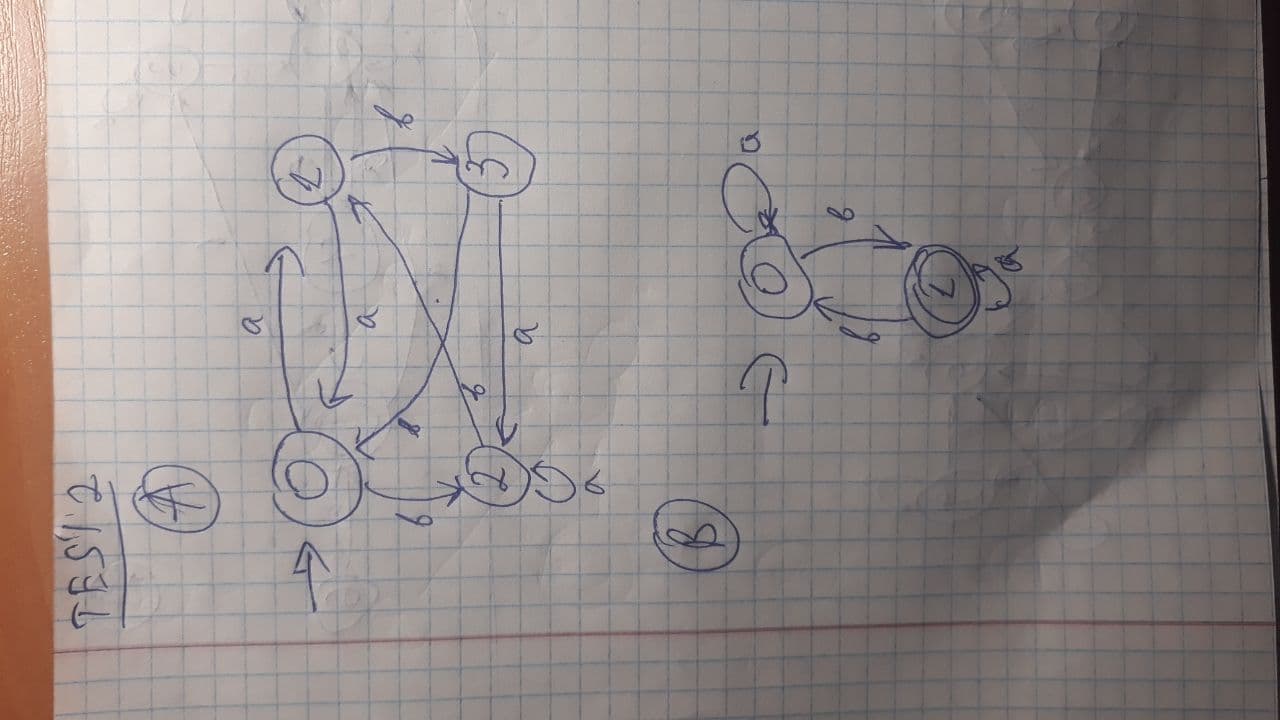 TEST 2
A
a
0 1
a
b b b
2 b 3
a
a
B
0 a
b b
1
a